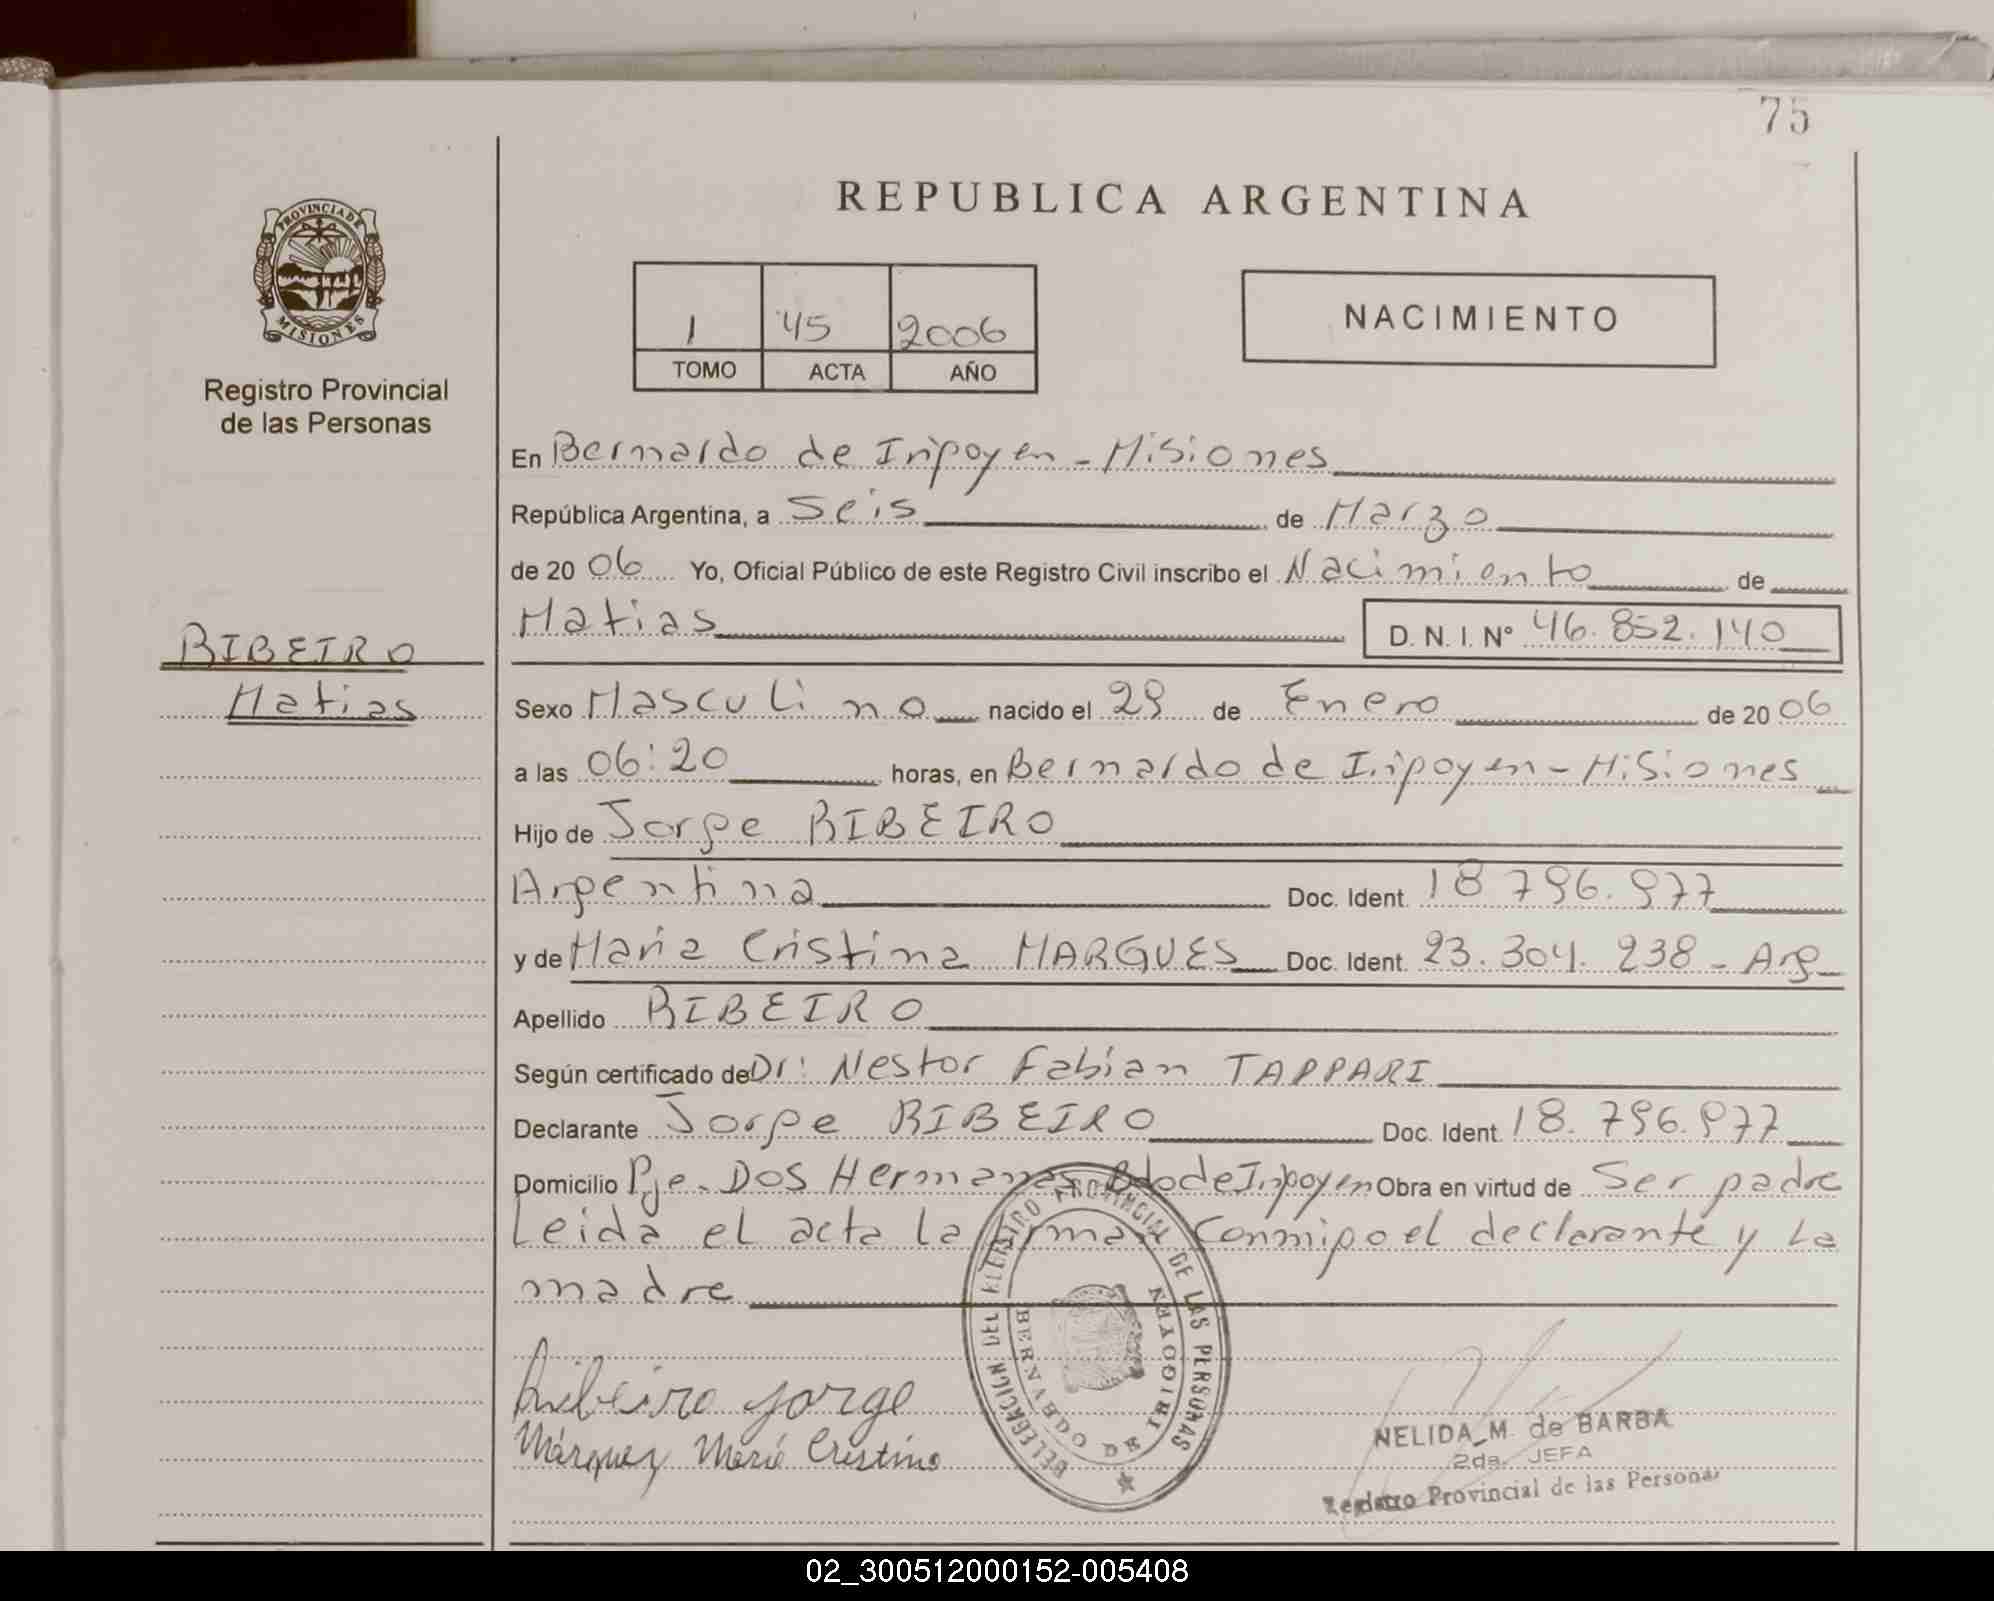 75
REPUBLICA ARGENTINA
PROVINCIA DE
MISIONES
Registro Provincial
de las Personas
1 45 2006
TOMO ACTA AÑO
NACIMIENTO
En Bernardo de Irigoyen - Misiones
República Argentina, a Seis de Marzo
de 20 06 Yo, Oficial Público de este Registro Civil inscribo el Nacimiento de
Matias D. N. I. N° 46.852.140
RIBEIRO
Matias
Sexo Masculino nacido el 29 de Enero de 20 06
a las 06:20 horas, en Bernardo de Irigoyen - Misiones
Hijo de Jorge RIBEIRO
Argentina Doc. Ident. 18.796.977
y de Maria Cristina MARGUES Doc. Ident. 23.304.238 - Arg
Apellido RIBEIRO
Según certificado de Dr: Nestor Fabian TAPPARI
Declarante Jorge RIBEIRO Doc. Ident. 18.796.977
Domicilio Pje. Dos Hermanas Bdo de Irigoyen Obra en virtud de Ser padre
Leida el acta la firman Conmigo el declarante y La
madre
DELEGACION DEL REGISTRO PROVINCIAL DE LAS PERSONAS
BERNARDO DE IRIGOYEN
Ribeiro Jorge
Márquez María Cristina
NELIDA M. de BARBA
2da. JEFA
Registro Provincial de las Personas
02_300512000152-005408